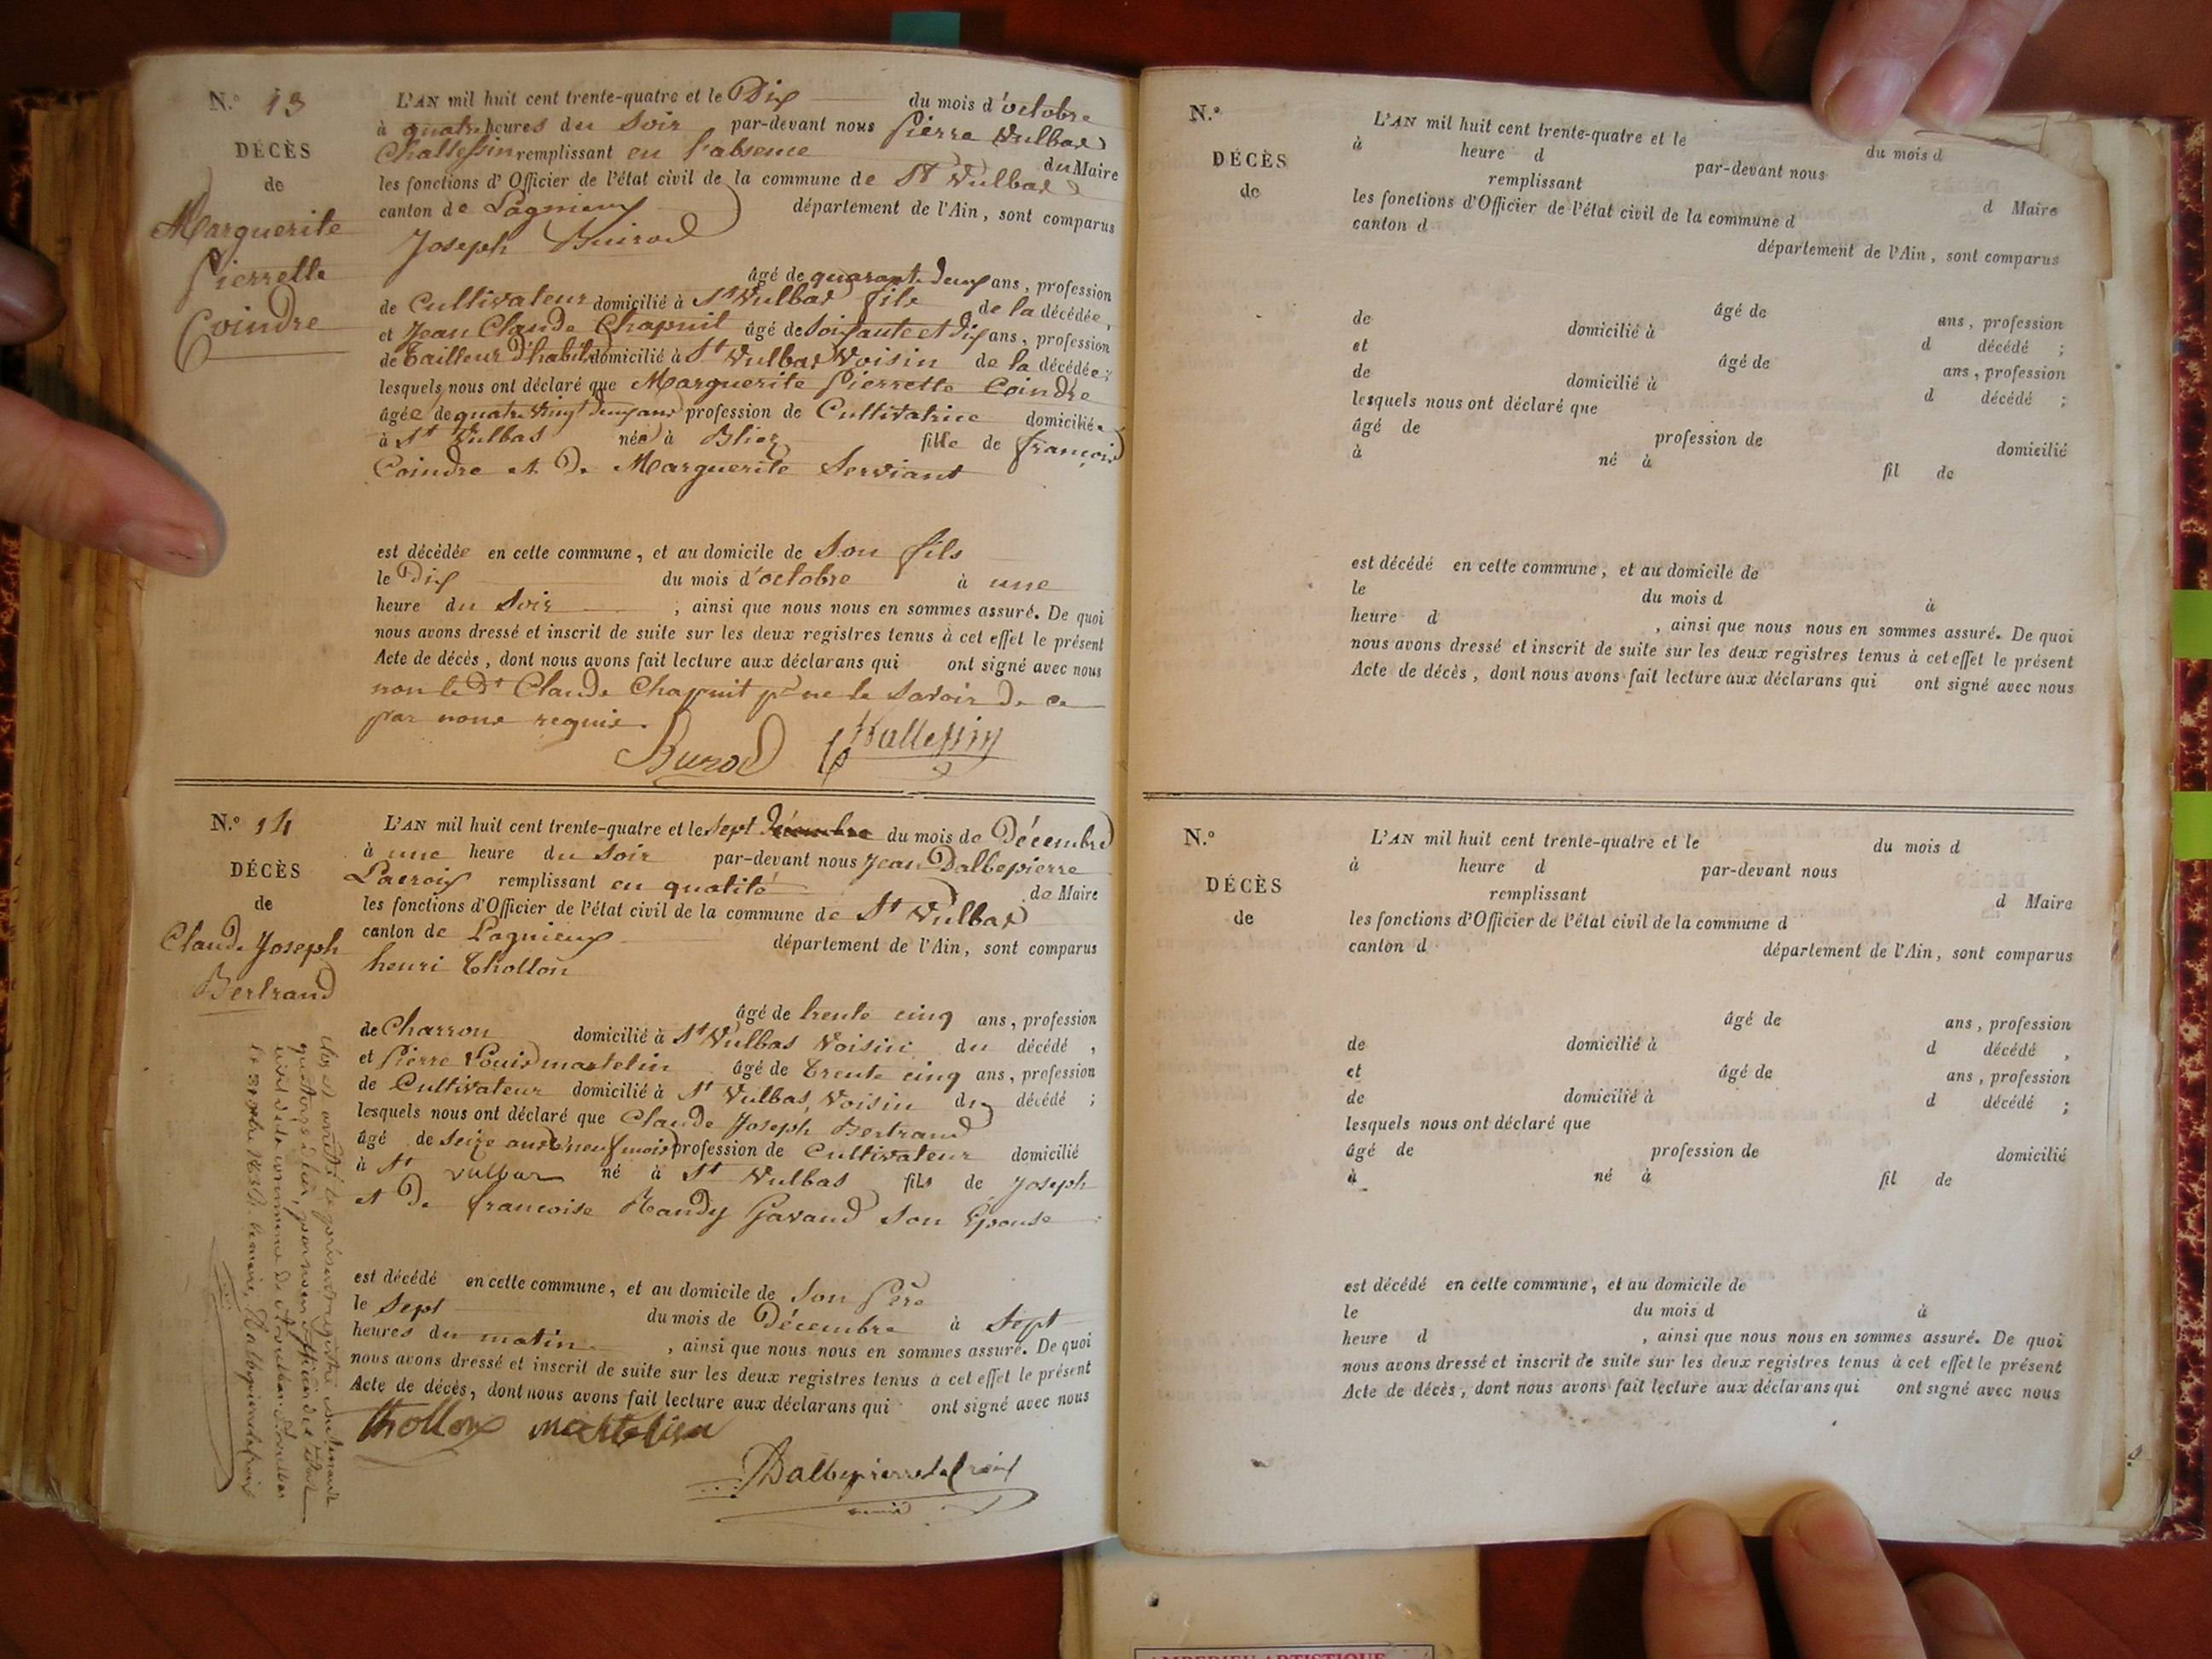 N.° 13
DÉCÈS
de
Marguerite
Pierrette
Coindre
L'AN mil huit cent trente-quatre et le Dix du mois d'octobre
à quatre heures du Soir par-devant nous Pierre Vulbas
Challessin remplissant en l'absence du Maire
les fonctions d'Officier de l'état civil de la commune de St Vulbas
canton de Lagnieux département de l'Ain, sont comparus
Joseph Buirod
âgé de quarante deux ans, profession
de Cultivateur domicilié à St Vulbas fils de la décédée,
et Jean Claude Chapuit âgé de Soixante et dix ans, profession
de Tailleur d'habits domicilié à St Vulbas Voisin de la décédée;
lesquels nous ont déclaré que Marguerite Pierrette Coindre
âgée de quatre vingt deux ans profession de Cultivatrice domiciliée
à St Vulbas née à Bliez fille de françois
Coindre et De Marguerite Serviant
est décédée en cette commune, et au domicile de Son fils
le Dix du mois d'octobre à une
heure du Soir ; ainsi que nous nous en sommes assuré. De quoi
nous avons dressé et inscrit de suite sur les deux registres tenus à cet effet le présent
Acte de décès, dont nous avons fait lecture aux déclarans qui ont signé avec nous
non le dt Claude Chapuit pr ne le Savoir De ce
par nous requis.
Buirod Challessin
N.° 14
DÉCÈS
de
Claude Joseph
Bertrand
L'AN mil huit cent trente-quatre et le Sept du mois de Décembre
à une heure du Soir par-devant nous Jean Dalbepierre
Lacroix remplissant en qualité de Maire
les fonctions d'Officier de l'état civil de la commune de St Vulbas
canton de Lagnieux département de l'Ain, sont comparus
henri Thollon
âgé de trente cinq ans, profession
de Charron domicilié à St Vulbas Voisin du décédé,
et Pierre Louis martelin âgé de Trente cinq ans, profession
de Cultivateur domicilié à St Vulbas, Voisin du décédé;
lesquels nous ont déclaré que Claude Joseph Bertrand
âgé de Seize ans neuf mois profession de Cultivateur domicilié
à St vulbas né à St Vulbas fils de Joseph
et De francoise Gavand Son Epouse
est décédé en cette commune, et au domicile de Son Père
le Sept du mois de Décembre à Sept
heures du matin, ainsi que nous nous en sommes assuré. De quoi
nous avons dressé et inscrit de suite sur les deux registres tenus à cet effet le présent
Acte de décès, dont nous avons fait lecture aux déclarans qui ont signé avec nous
thollon martelin
Dalbepierre Lacroix
maire
Clos et arrêté le présent registre contenant
quatorze par nous Officier de l'Etat
civil de la commune de St Vulbas
le 31 Xbre 1834. le maire, Dalbepierre Lacroix
N.°
DÉCÈS
de
L'AN mil huit cent trente-quatre et le du mois d
à heure d par-devant nous
remplissant d Maire
les fonctions d'Officier de l'état civil de la commune d
canton d département de l'Ain, sont comparus
âgé de ans, profession
de domicilié à d décédé ;
et âgé de ans, profession
de domicilié à d décédé ;
lesquels nous ont déclaré que
âgé de profession de domicilié
à né à fil de
est décédé en cette commune, et au domicile de
le du mois d à
heure d , ainsi que nous nous en sommes assuré. De quoi
nous avons dressé et inscrit de suite sur les deux registres tenus à cet effet le présent
Acte de décès, dont nous avons fait lecture aux déclarans qui ont signé avec nous
N.°
DÉCÈS
de
L'AN mil huit cent trente-quatre et le du mois d
à heure d par-devant nous
remplissant d Maire
les fonctions d'Officier de l'état civil de la commune d
canton d département de l'Ain, sont comparus
âgé de ans, profession
de domicilié à d décédé ,
et âgé de ans, profession
de domicilié à d décédé ;
lesquels nous ont déclaré que
âgé de profession de domicilié
à né à fil de
est décédé en cette commune, et au domicile de
le du mois d à
heure d , ainsi que nous nous en sommes assuré. De quoi
nous avons dressé et inscrit de suite sur les deux registres tenus à cet effet le présent
Acte de décès, dont nous avons fait lecture aux déclarans qui ont signé avec nous